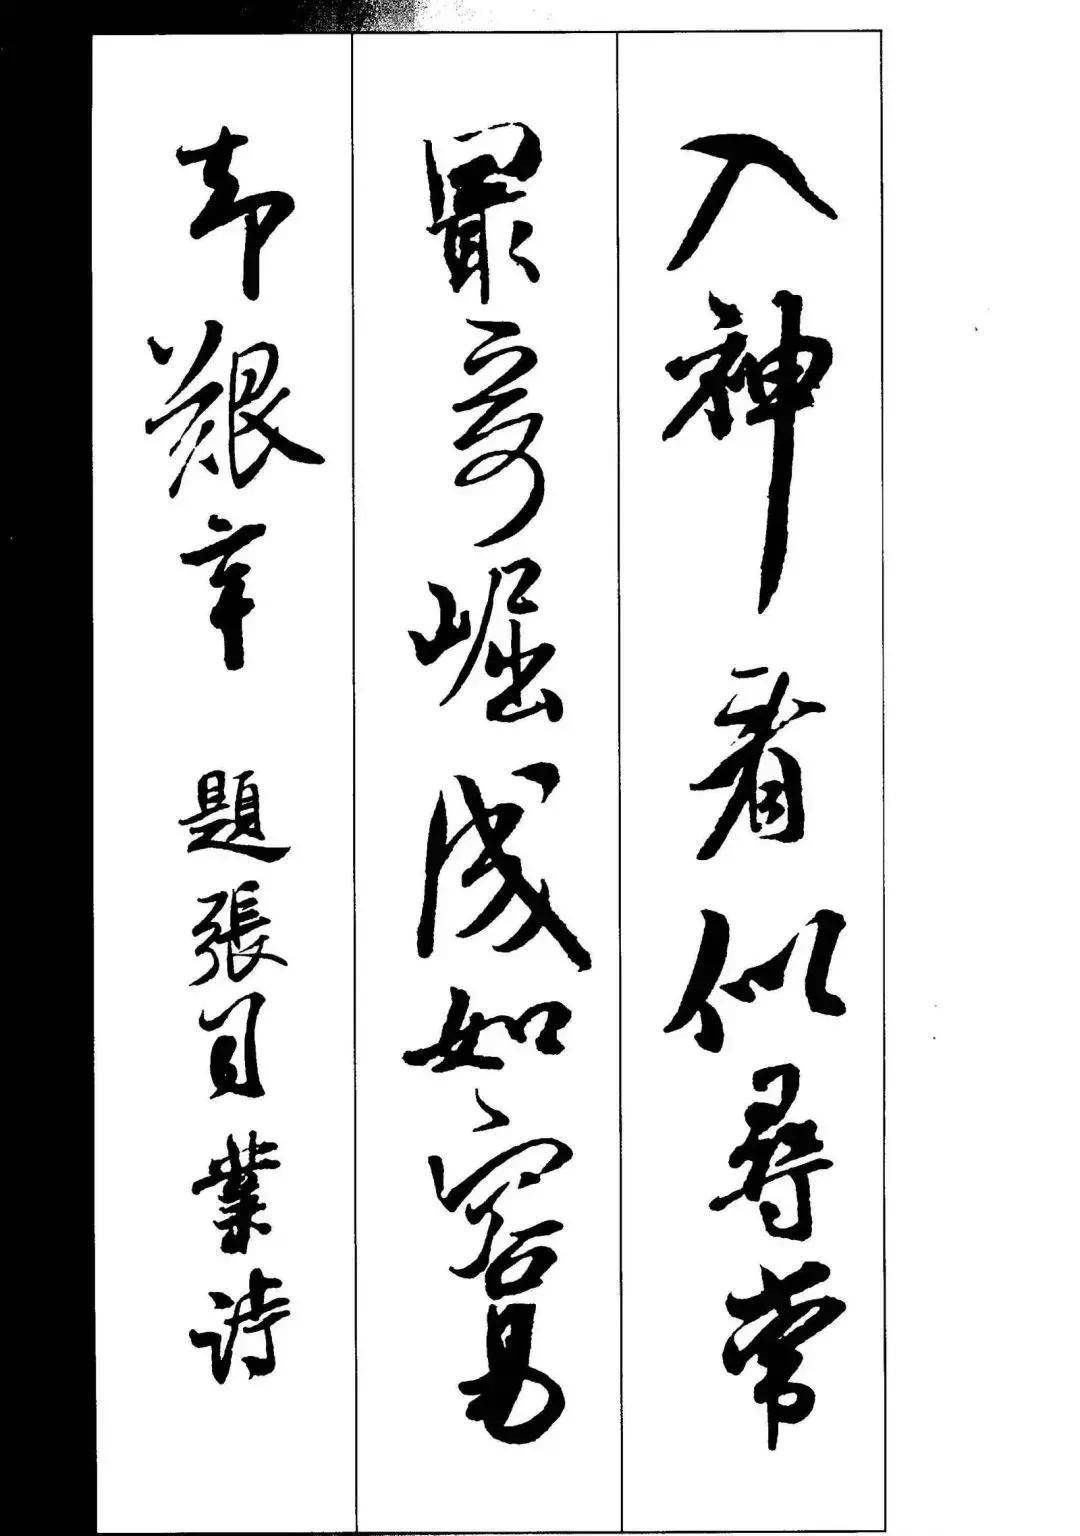 入神看似尋常
最奇崛成如容易
却艱辛 題張司業詩